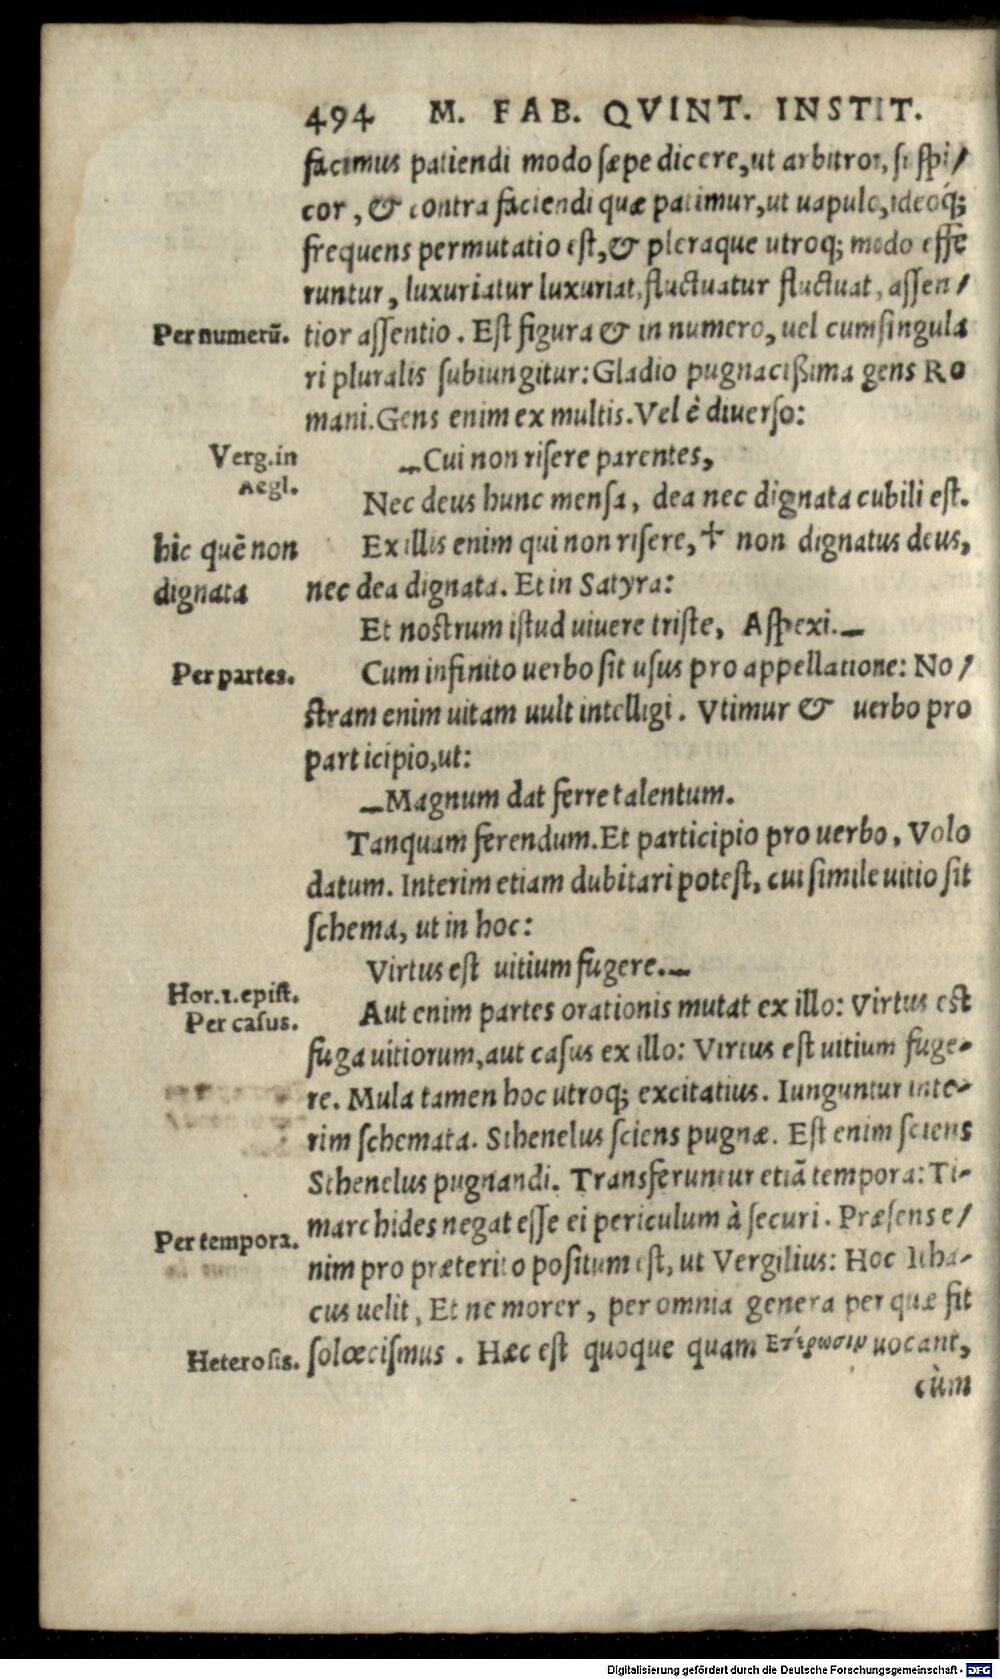 494 M. FAB. QVINT. INSTIT.
facimus patiendi modo sæpe dicere, ut arbitror, suspi/
cor, & contra faciendi quæ patimur, ut uapulo, ideoq́;
frequens permutatio est, & pleraque utroq; modo effe
runtur, luxuriatur luxuriat, fluctuatur fluctuat, assen/
Per numerū.
tior assentio. Est figura & in numero, uel cum singula
ri pluralis subiungitur: Gladio pugnacißima gens Ro
mani. Gens enim ex multis. Vel è diuerso:
Verg. in
Aegl.
—Cui non risere parentes,
Nec deus hunc mensa, dea nec dignata cubili est.
hic quē non
dignata
Ex illis enim qui non risere, ✝ non dignatus deus,
nec dea dignata. Et in Satyra:
Et nostrum istud uiuere triste, Aspexi.—
Per partes.
Cum infinito uerbo sit usus pro appellatione: No/
stram enim uitam uult intelligi. Vtimur & uerbo pro
participio, ut:
—Magnum dat ferre talentum.
Tanquam ferendum. Et participio pro uerbo, Volo
datum. Interim etiam dubitari potest, cui simile uitio sit
schema, ut in hoc:
Virtus est uitium fugere.—
Hor. 1. epist.
Per casus.
Aut enim partes orationis mutat ex illo: Virtus est
fuga uitiorum, aut casus ex illo: Virtus est uitium fuge-
re. Mula tamen hoc utroq; excitatius. Iunguntur inte-
rim schemata. Sthenelus sciens pugnæ. Est enim sciens
Sthenelus pugnandi. Transferuntur etiā tempora: Ti-
marchides negat esse ei periculum à securi. Præsens e/
Per tempora.
nim pro præterito positum est, ut Vergilius: Hoc Itha-
cus uelit, Et ne morer, per omnia genera per quæ fit
Heterosis.
solœcismus. Hæc est quoque quam Ετέρωσιν uocant,
cùm
Digitalisierung gefördert durch die Deutsche Forschungsgemeinschaft - DFG